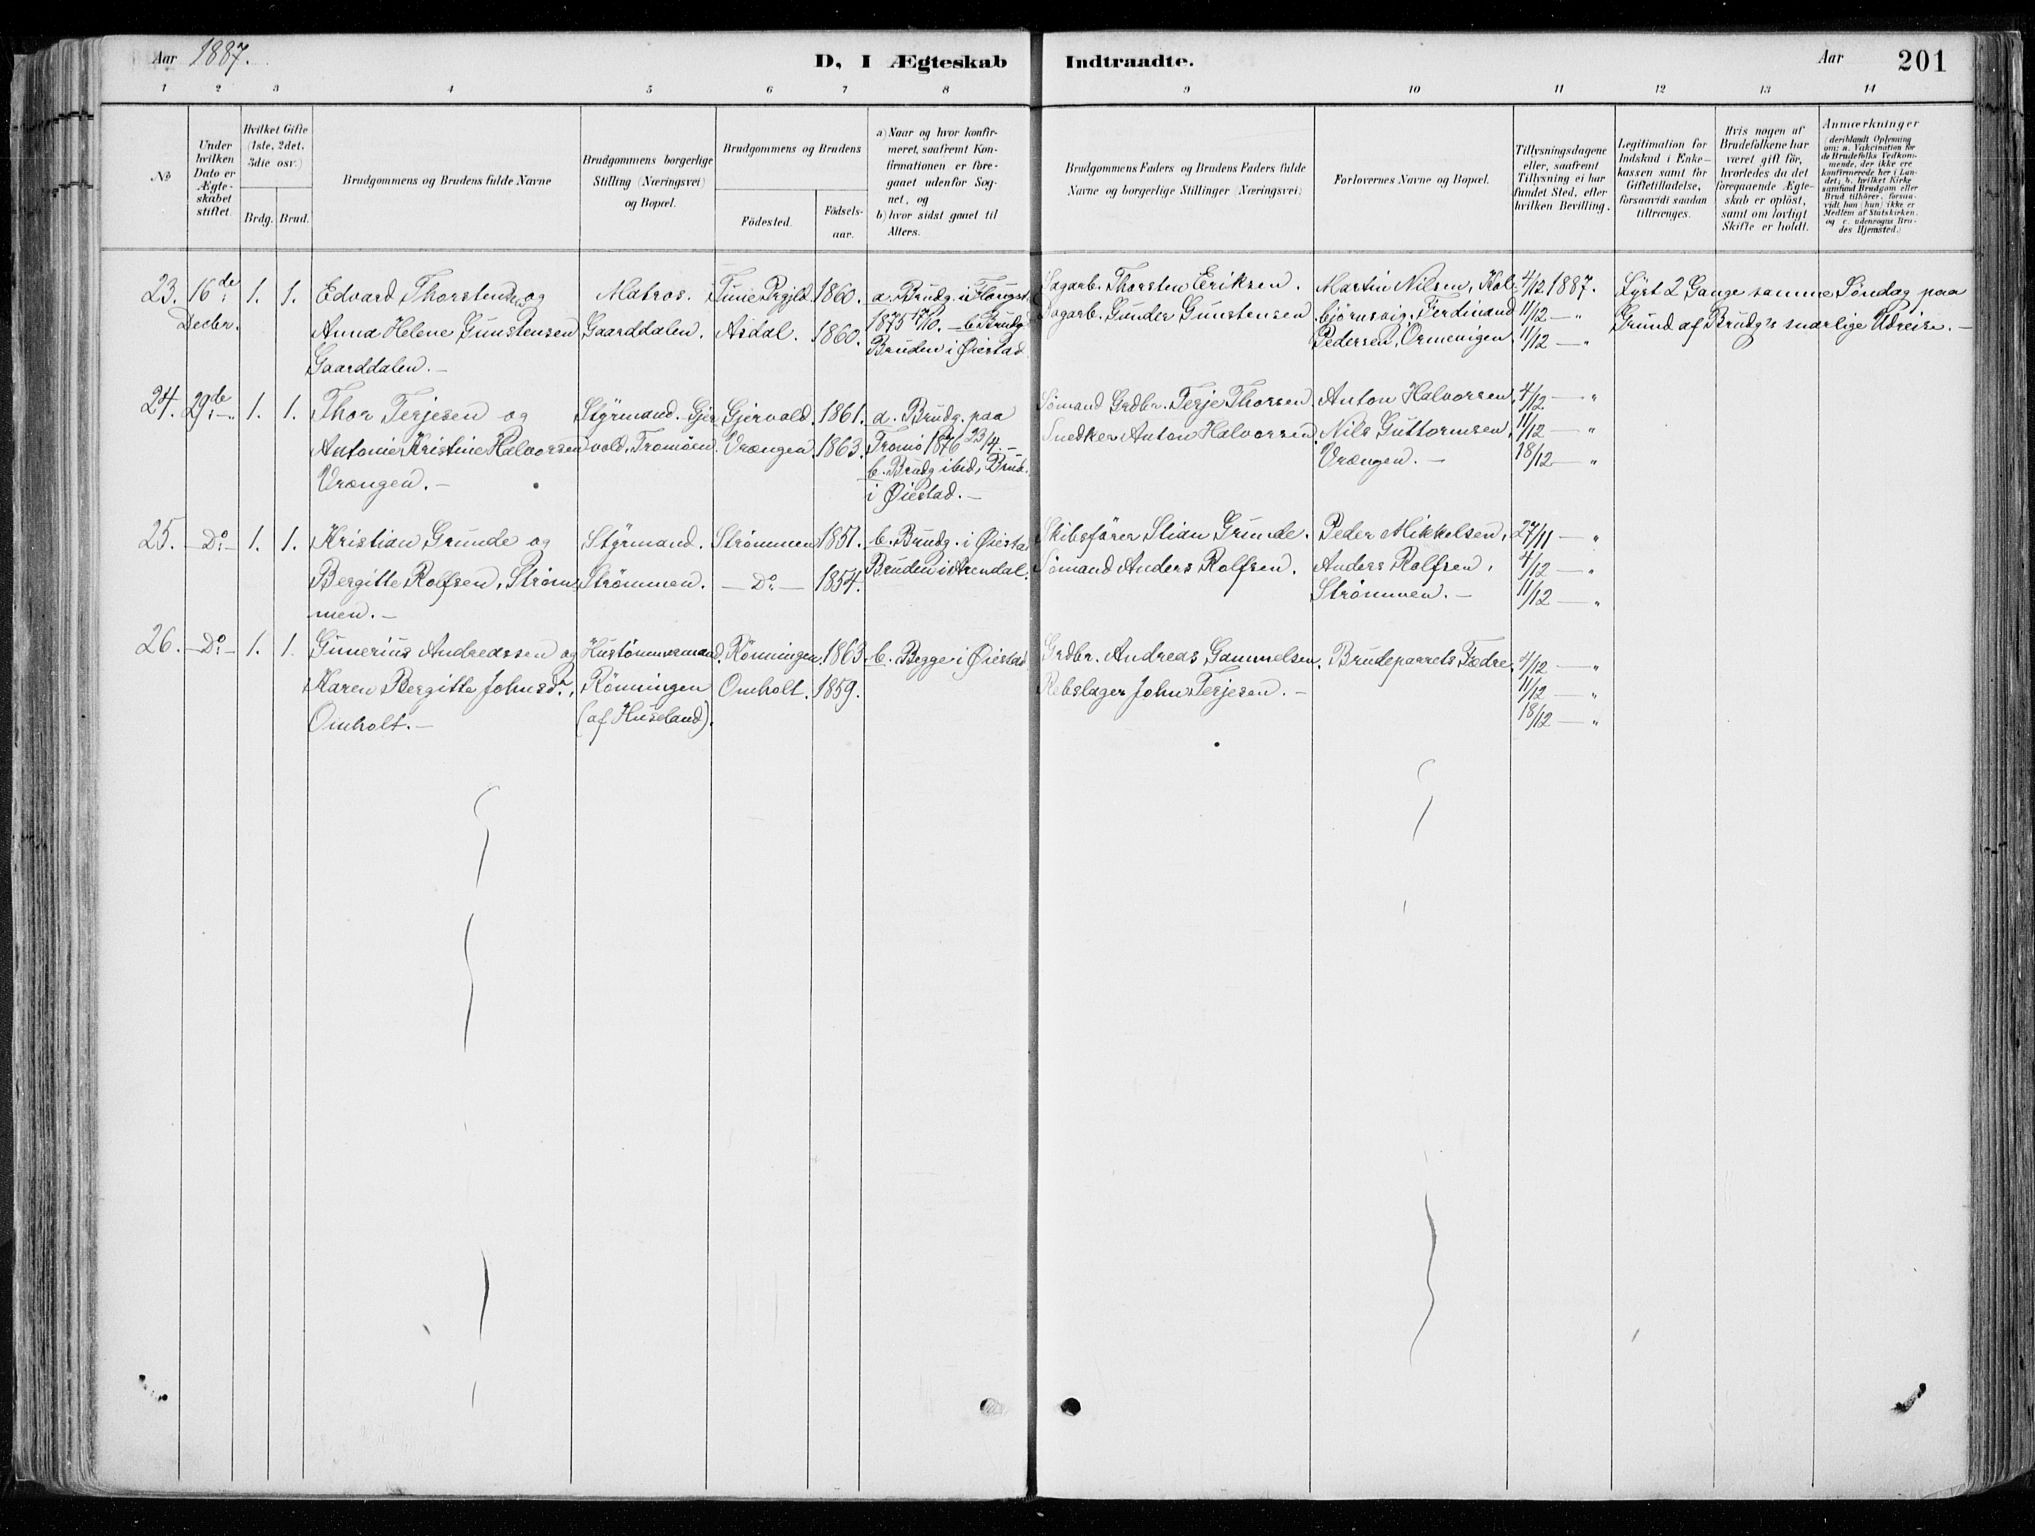 Aar 1887.
D. I Ægteskab
Indtraadte.
Aar
201
1 2 3 4 5 6 7 8 9 10 11 12 13 14
No
Under
hvilken
Dato er
Ægte-
skabet
stiftet.
Hvilket Gifte
(1ste, 2det,
3die osv.)
Brdg. Brud.
Brudgommens og Brudens fulde Navne
Brudgommens borgerlige
Stilling (Næringsvei)
og Bopæl.
Brudgommens og Brudens
Födested.
Födsels-
aar.
a) Naar og hvor konfir-
meret, saafremt Kon-
firmationen er fore-
gaaet udenfor Sog-
net, og
b) hvor sidst gaaet til
Alters.
Brudgommens Faders og Brudens Faders fulde
Navne og borgerlige Stillinger (Næringsvei)
Forlovernes Navne og Bopæl.
Tillysningsdagene
eller, saafremt
Tillysning ei har
fundet Sted, efter
hvilken Bevilling.
Legitimation for
Indskud i Enke-
kassen samt for
Giftetilladelse,
forsaavidt saadan
tiltrænges.
Hvis nogen af
Brudefolkene har
været gift før,
hvorledes da det
foregaaende Ægte-
skab er opløst,
samt om lovligt
Skifte er holdt.
Anmærkninger
(deriblandt Oplysning
om: a. Vakcination for
de Brudefolks Vedkom-
mende, der ikke ere
konfirmerede her i Lan-
det; b. hvilket Kirke-
samfund Brudgom eller
Brud tilhører, forsaa-
vidt han (hun) ikke er
Medlem af Statskirken,
og c. udenrogns Bru-
des Hjemsted.)
23. 16de Decbr. 1. 1.
Edvard Thorstensen og
Anna Helene Gunstensen
Gaarddalen.-
Matros.
Gaarddalen.
Tune Prgjld. 1860.
Asdal. 1860.
1875 17/10. - b. Brudg.
Bruden i Øiestad
Sagarb. Thorsten Eriksen.
Sagarb. Gunder Gunstensen
Martin Nilsen, Kol-
björnsvig. Ferdinand
Pedersen, Ormevigen.
4/12 1887.
11/12 — "
11/12 — "
Lyst 2 Gange samme Søndag paa
Grund af Brudg's snarlige Udreise. -
24. 29de - 1. 1.
Thor Terjesen og
Antonie Kristine Halvorsen
Vrængen.-
Styrmand. Gjer-
vold, Tromöen.
Gjervold. 1861.
Vrængen 1863.
a. Brudg. paa
Tromö 1876 23/4. -
b. Brudg. ibid, Brud.
i Øiestad.-
Sömand Grdbr. Terje Thorsen
Snedker Anton Halvorsen.
Anton Halvorsen,
Nils Guttormsen,
Vrængen.-
4/12 — "
11/12 — "
18/12 — "
25. - Do - 1. 1.
Kristian Grunde og
Bergitte Rolfsen, Ström-
men.-
Styrmand.
Strömmen.
Strömmen 1851.
- Do - 1854.
b. Brudg. i Øiestad
Bruden i Arendal.
Skibsförer Stian Grunde.
Sömand Anders Rolfsen.
Peder Mikkelsen,
Anders Rolfsen,
Strömmen.-
27/11 — "
4/12 — "
11/12 — "
26. - Do - 1. 1.
Gunerius Andreassen og
Karen Bergitte Johnsdr.,
Omholt.-
Hustömmermand.
Rönningen
(af Huseland).
Rönningen. 1863.
Omholt. 1859.
b. Begge i Øiestad
Grdbr. Andreas Gammelsen.
Rebslager John Terjesen.-
Brudeparrets Fædre.
4/12 — "
11/12 — "
18/12 — "